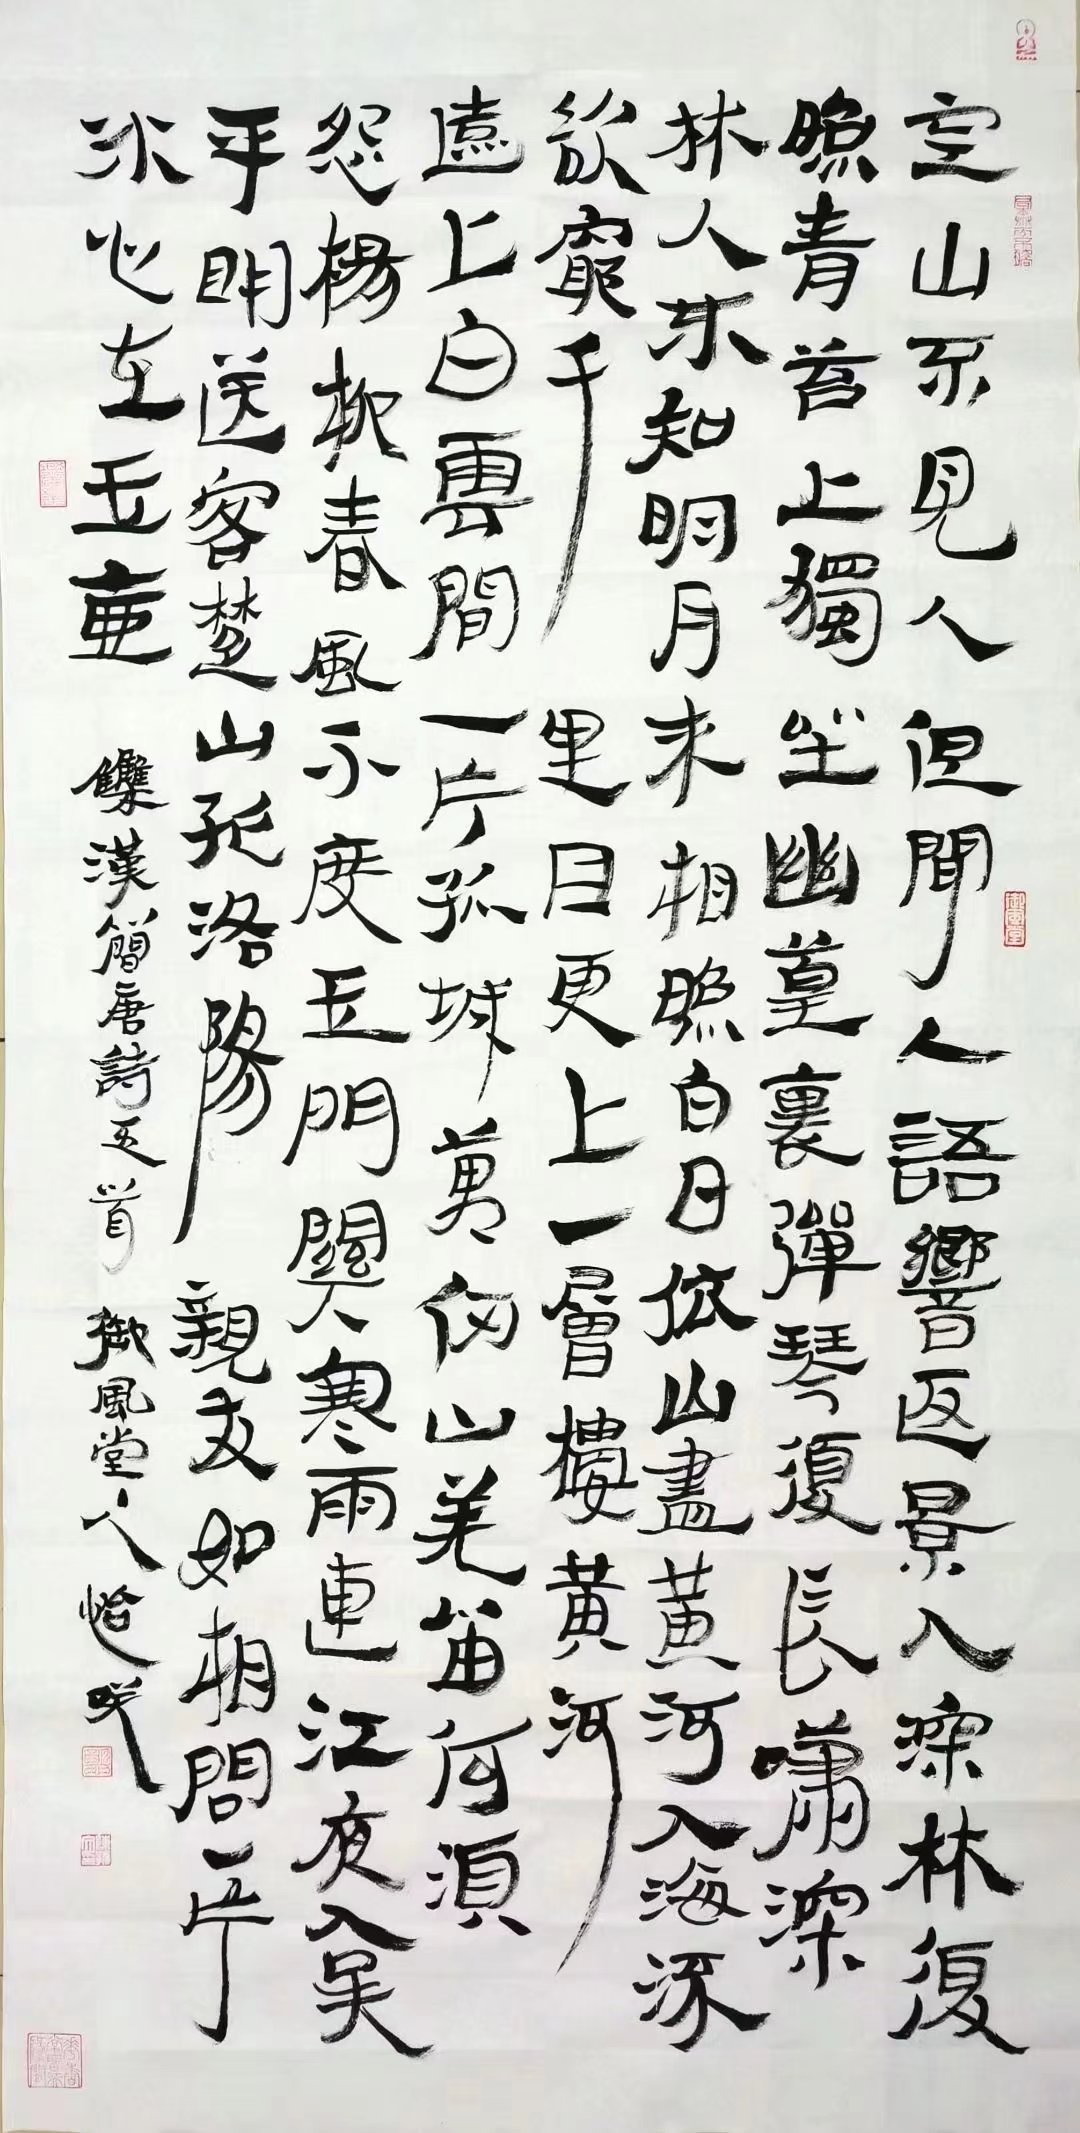 空山不見人但聞人語響返景入深林復
照青苔上獨坐幽篁裏彈琴復長嘯深
林人不知明月来相照白日依山盡黃河入海流
欲窮千里目更上一層樓黃河
遠上白雲間一片孤城萬仞山羌笛何須
怨楊柳春風不度玉門關寒雨連江夜入吴
平明送客楚山孤洛陽親友如相問一片
冰心在玉壺
雧漢簡唐詩五首 御風堂人怡
御風堂